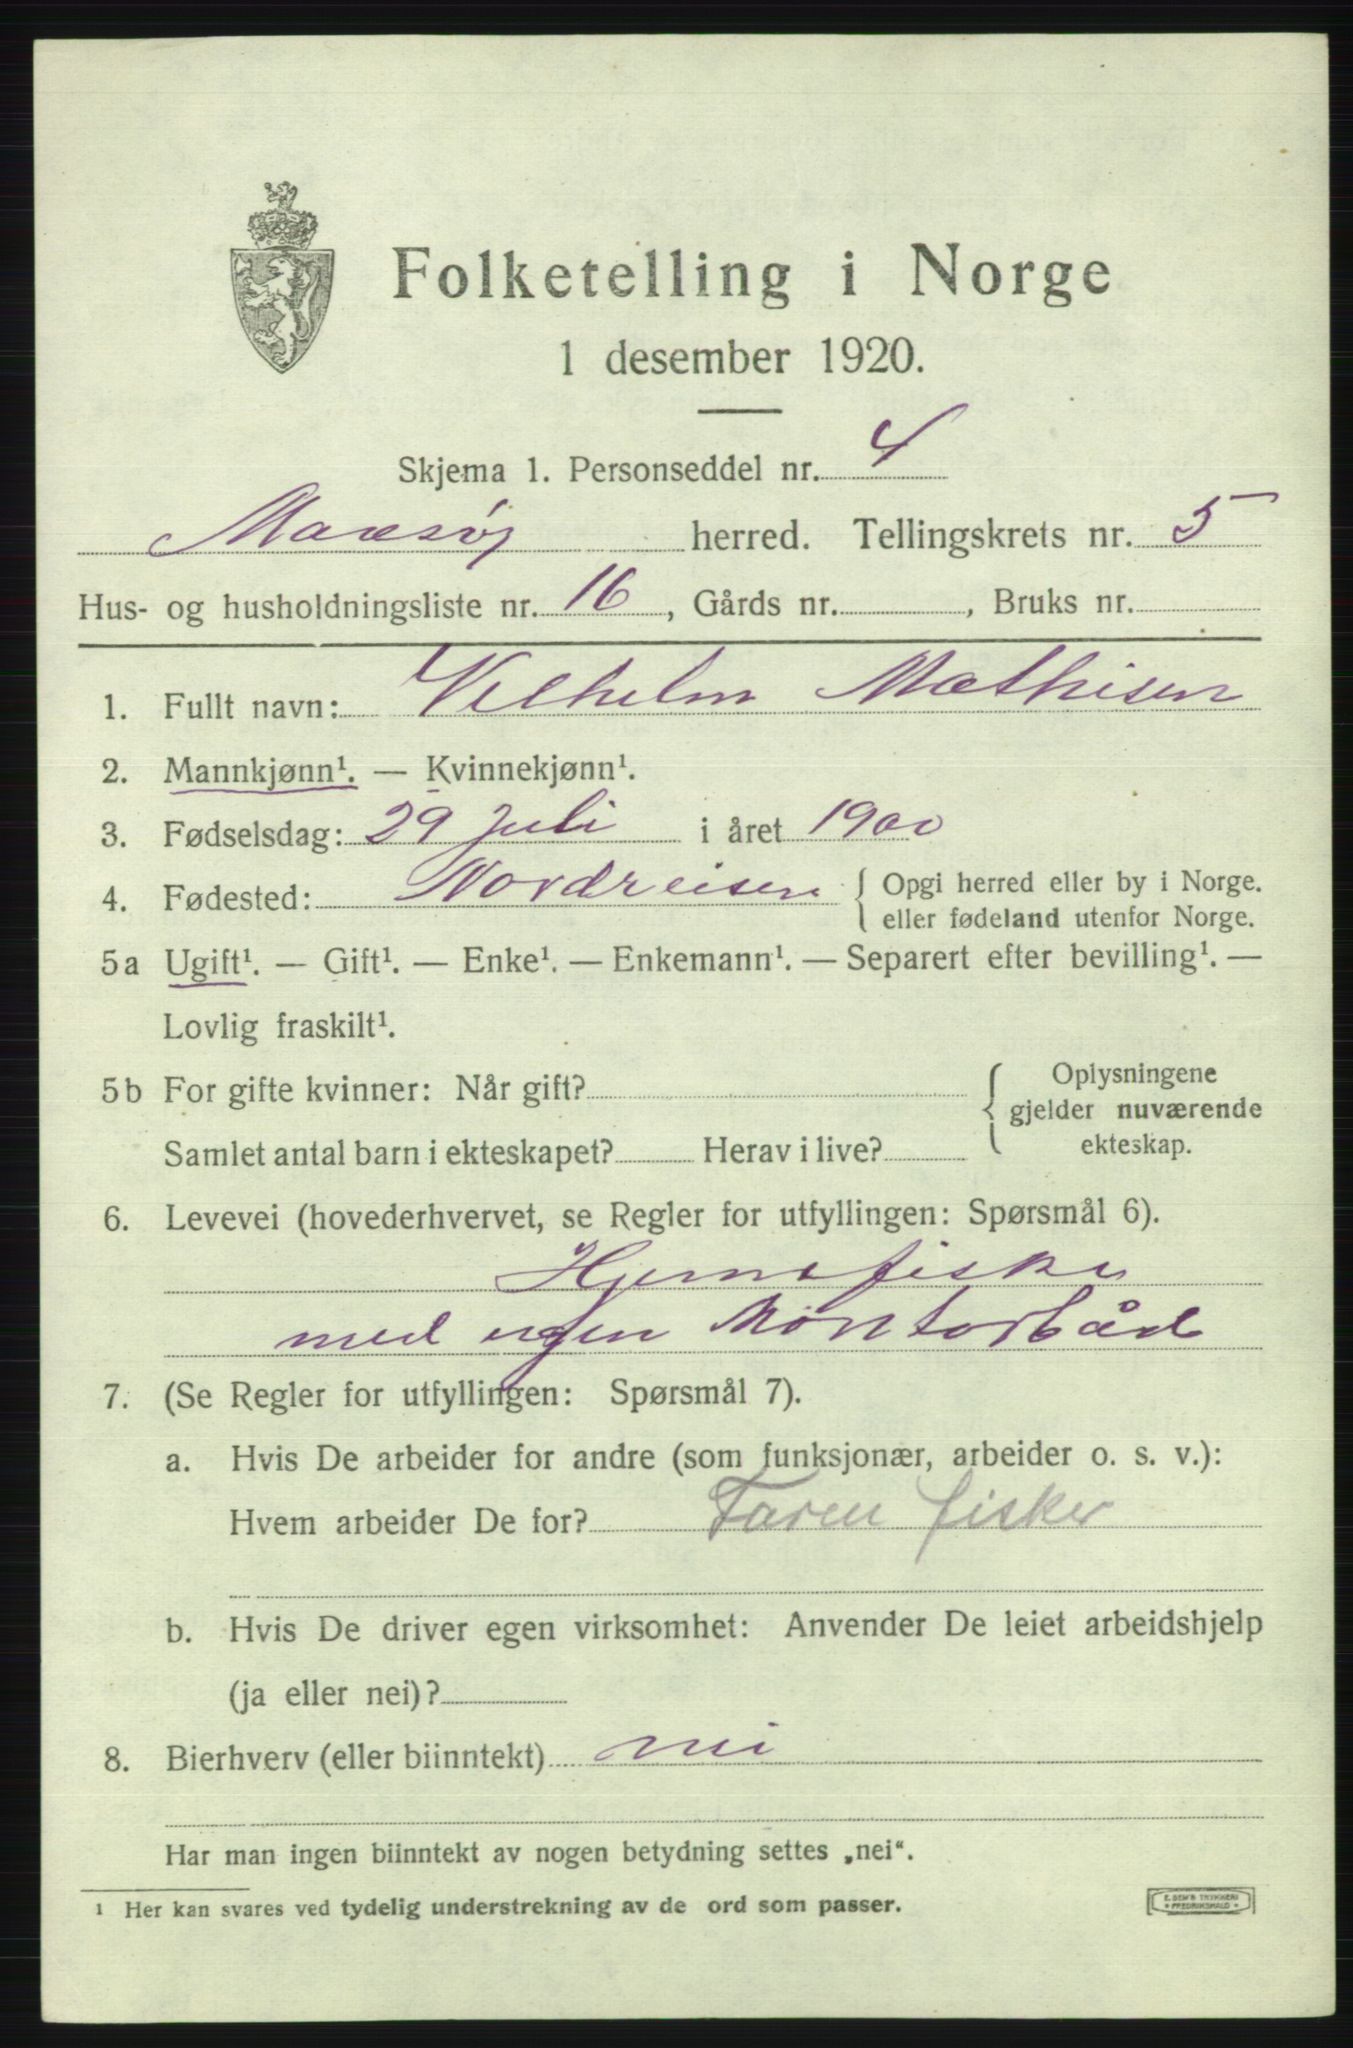 Folketelling i Norge
1 desember 1920.
Skjema 1. Personseddel nr. 4
Maasøy herred. Tellingskrets nr. 5
Hus- og husholdningsliste nr. 16, Gårds nr. , Bruks nr.
1. Fullt navn: Vilhelm Mathisen
2. Mannkjønn¹. — Kvinnekjønn¹.
3. Fødselsdag: 29 juli i året 1900
4. Fødested: Nordreisen { Opgi herred eller by i Norge.
eller fødeland utenfor Norge.
5a Ugift¹. — Gift¹. — Enke¹. — Enkemann¹. — Separert efter bevilling¹. —
Lovlig fraskilt¹.
5b For gifte kvinner: Når gift? { Oplysningene
gjelder nuværende
ekteskap.
Samlet antal barn i ekteskapet? Herav i live?
6. Levevei (hovederhvervet, se Regler for utfyllingen: Spørsmål 6).
Hjemefisker
med egen Montorbåd
7. (Se Regler for utfyllingen: Spørsmål 7).
a. Hvis De arbeider for andre (som funksjonær, arbeider o. s. v.):
Hvem arbeider De for? Faren fisker
b. Hvis De driver egen virksomhet: Anvender De leiet arbeidshjelp
(ja eller nei)?
8. Bierhverv (eller biinntekt) nei
Har man ingen biinntekt av nogen betydning settes „nei“.
¹ Her kan svares ved tydelig understrekning av de ord som passer.
E. SEM'S TRYKKERI
FREDRIKSHALD